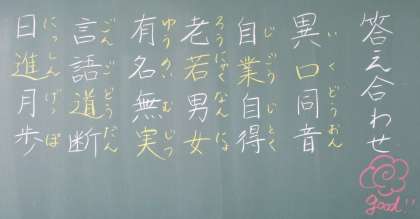 答え合わせ
異口同音
いくどうおん
自業自得
じごうじとく
老若男女
ろうにゃくなんにょ
有名無実
ゆうめいむじつ
言語道断
ごんごどうだん
日進月歩
にっしんげっぽ
good!!